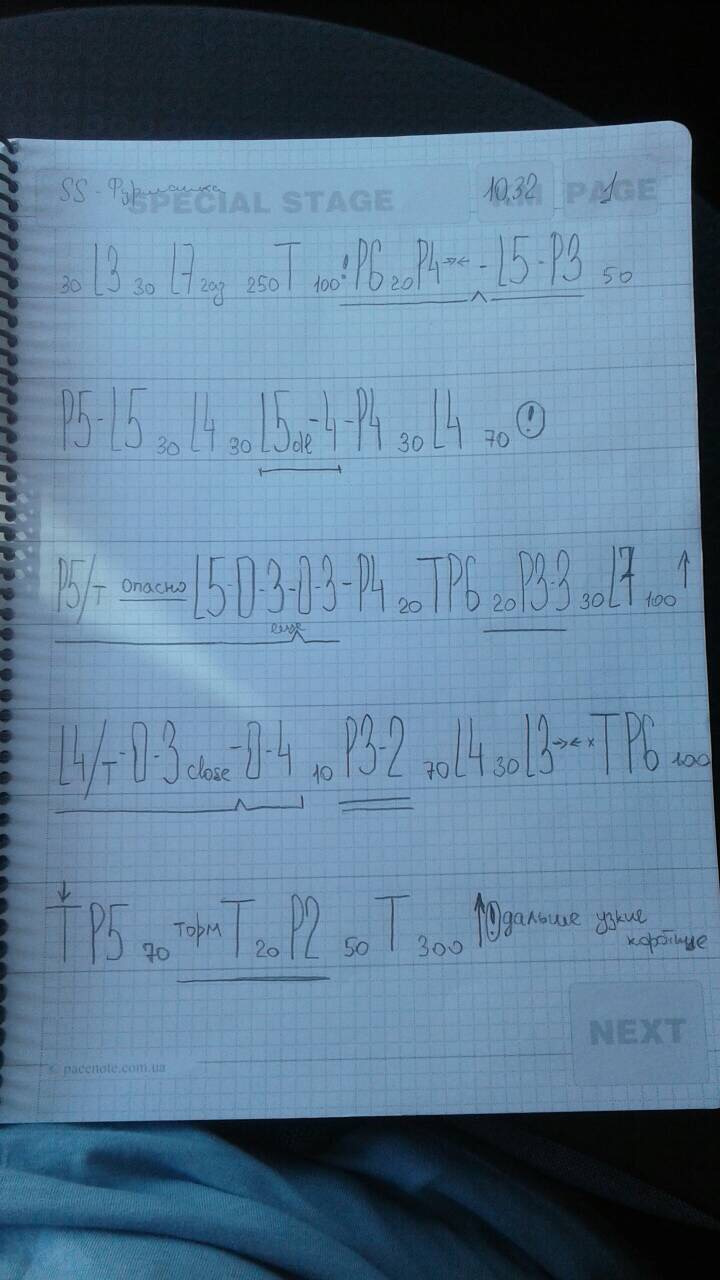 SS - Фурмашка SPECIAL STAGE 10,32 KM PAGE 1
30 L3 30 L7 газ 250 T 100 ! P6 20 P4 →← - L5 - P3 50
P5 - L5 30 L4 30 L5 de - 4 - P4 30 L4 70 !
P5/т опасно L5 - 0 - 3 - 0 - 3 - P4 20 TP6 20 P3-3 30 L7 100 ↑
еще
L4/т - 0 - 3 close - 0 - 4 10 P3-2 70 L4 30 L3 →← × TP6 100
↓
T P5 70 торм T 20 P2 50 T 300 ↑ ! дальше узкие
NEXT
© pacenote.com.ua